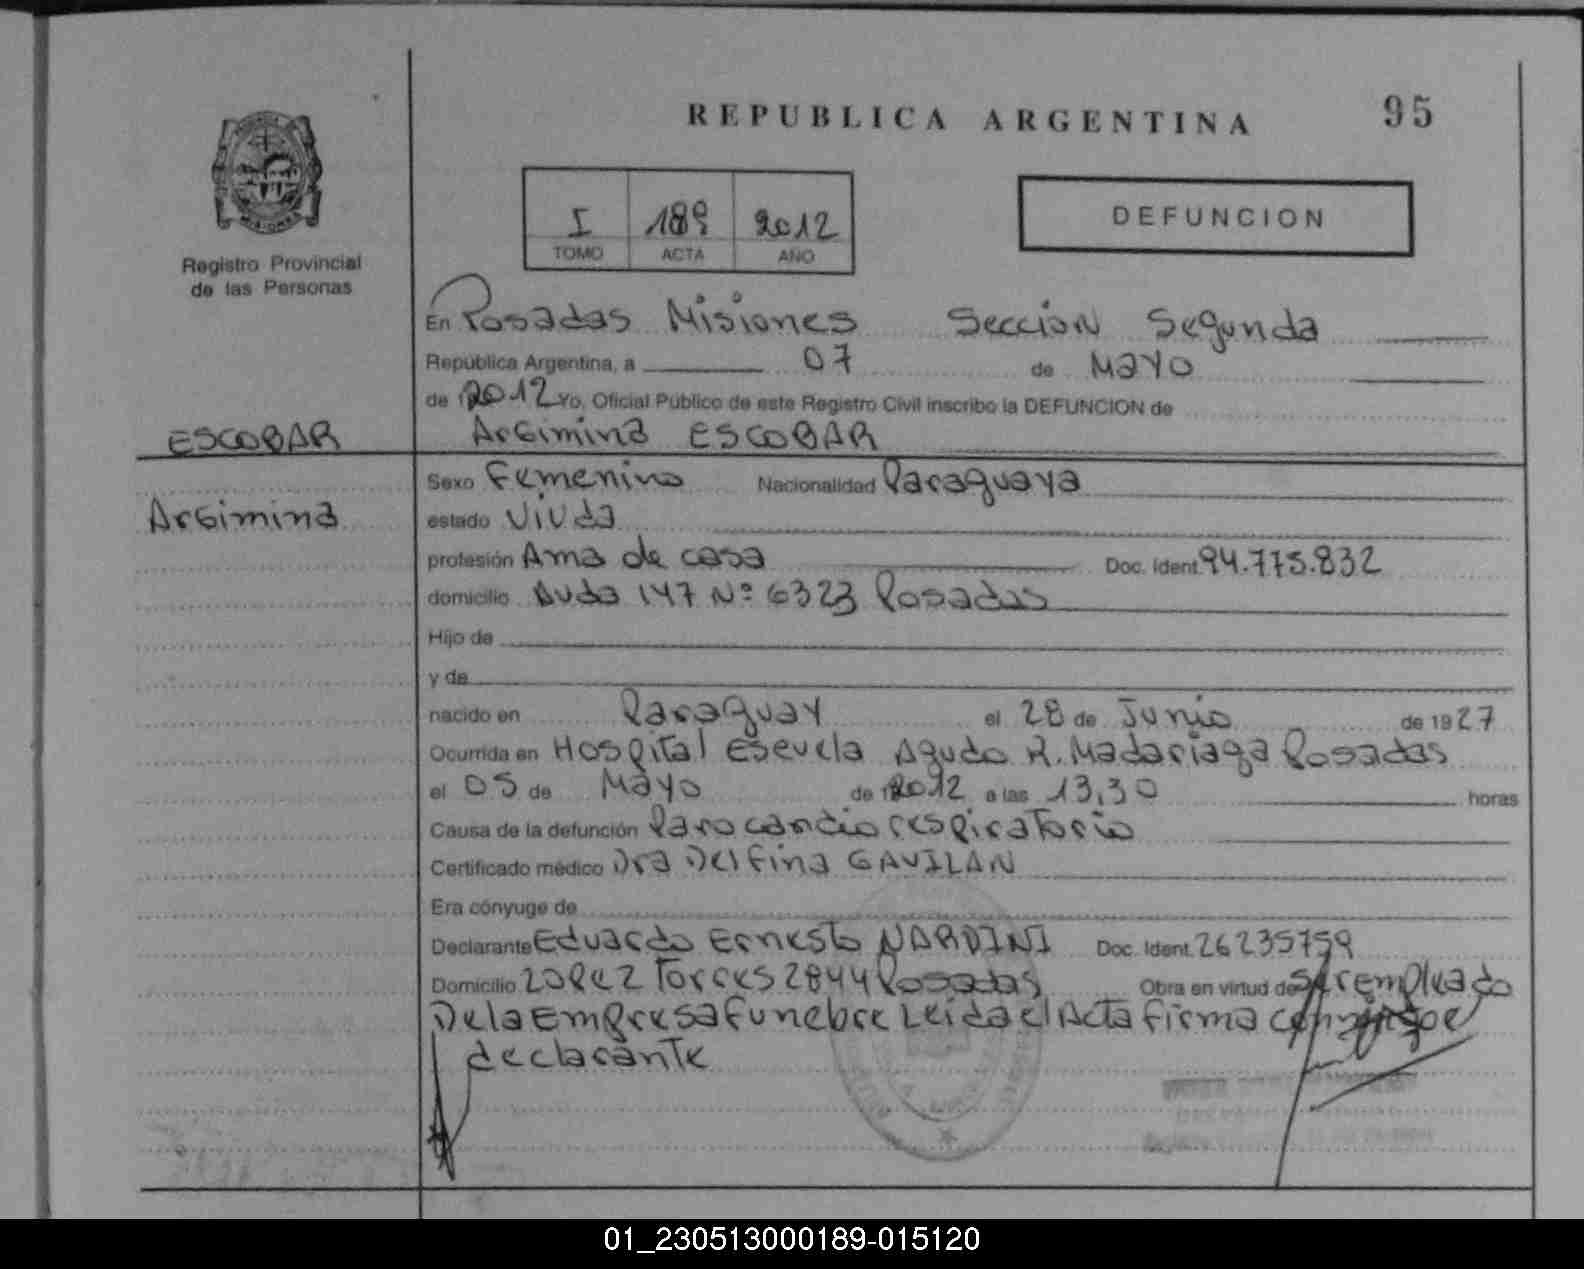 REPUBLICA ARGENTINA 95
I 189 2012
TOMO ACTA AÑO
DEFUNCION
Registro Provincial
de las Personas
En Posadas Misiones Seccion Segunda
República Argentina, a 07 de Mayo
de 2012 Yo, Oficial Público de este Registro Civil inscribo la DEFUNCION de
ESCOBAR Argimina ESCOBAR
Sexo Femenino Nacionalidad Paraguaya
Argimina
estado Viuda
profesión Ama de casa Doc. Ident. 94.775.832
domicilio Avda 147 Nº 6323 Posadas
Hijo de
y de
nacido en Paraguay el 28 de Junio de 1927
Ocurrida en Hospital Escuela Agudo R. Madariaga Posadas
el 05 de Mayo de 2012 a las 13,30 horas
Causa de la defunción Paro cardio respiratorio
Certificado médico Dra Delfina GAVILAN
Era cónyuge de
Declarante Eduardo Ernesto NARDINI Doc. Ident. 26235759
Domicilio Lopez Torres 2844 Posadas Obra en virtud de ser empleado
De la Empresa funebre Leida el Acta firma conmigo el
declarante
01_230513000189-015120